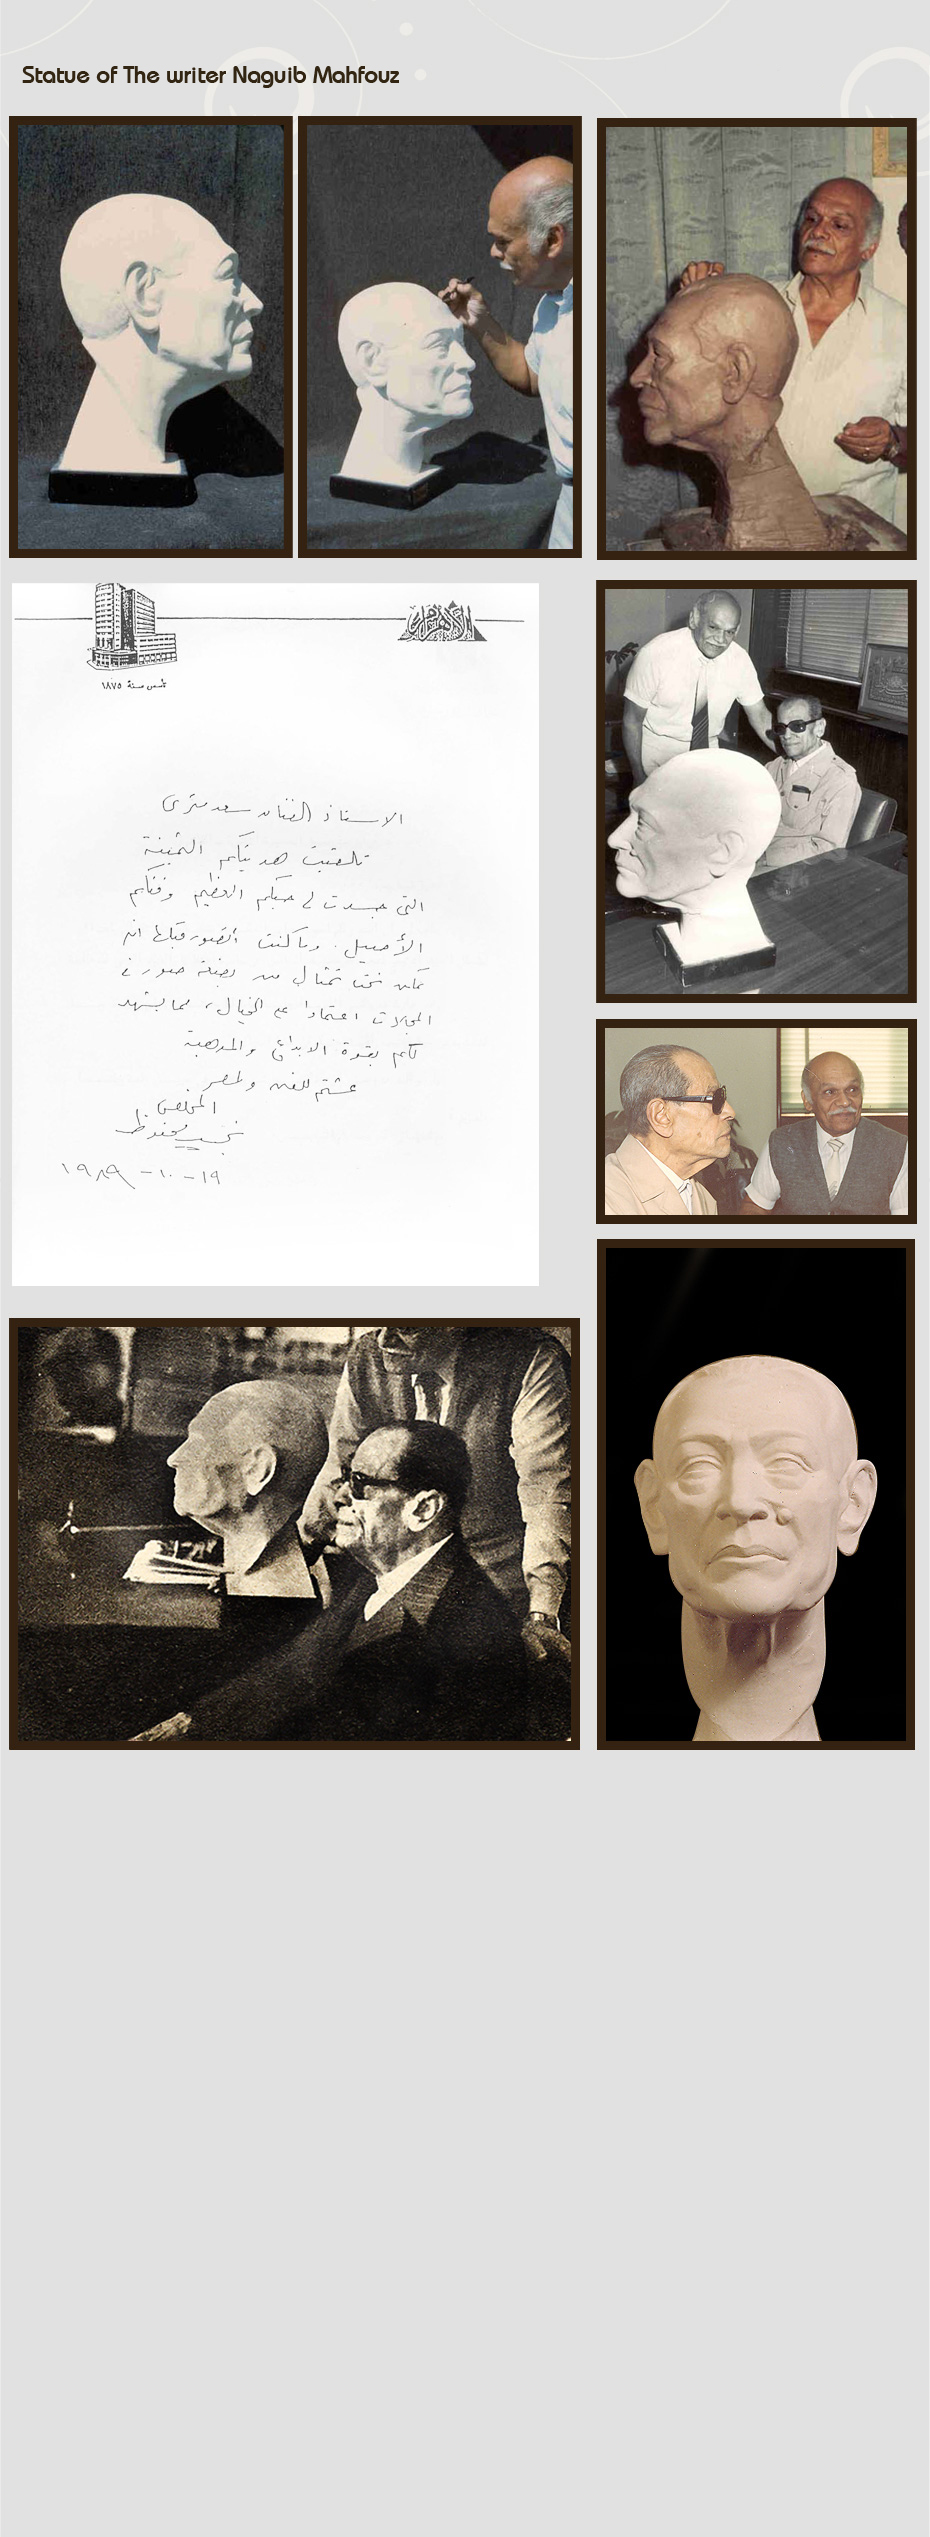 Statue of The writer Naguib Mahfouz
الأهرام
تأسس سنة ١٨٧٥
الاستاذ الفنان سعد
تلقيت هديتكم الثمينة
التى جسدت لى حبكم العظيم وفنكم
الأصيل. وما كنت اتصور قبلها انه
يمكن نحت تمثال من بضعة صور فى
المجلات اعتمادا على الخيال، مما يشهد
لكم بقوة الابداع والموهبة
عشتم للفن ولمصر.
المخلص
نجيب محفوظ
١٩ - ١٠ - ١٩٨٩